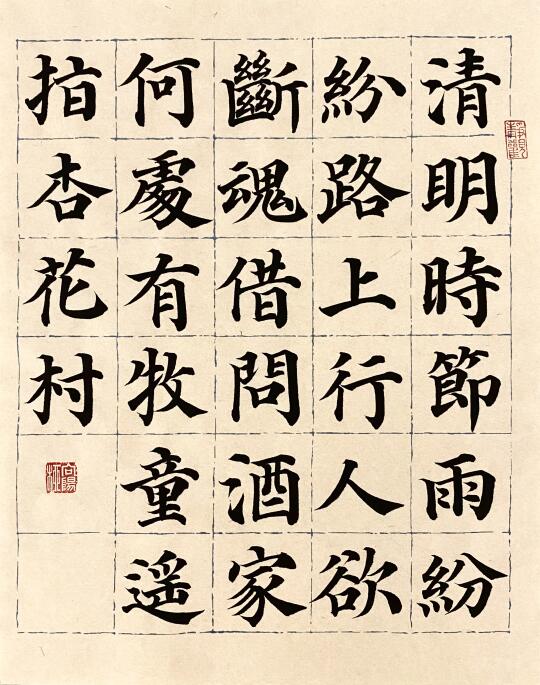 清明時節雨紛
紛路上行人欲
斷魂借問酒家
何處有牧童遥
指杏花村